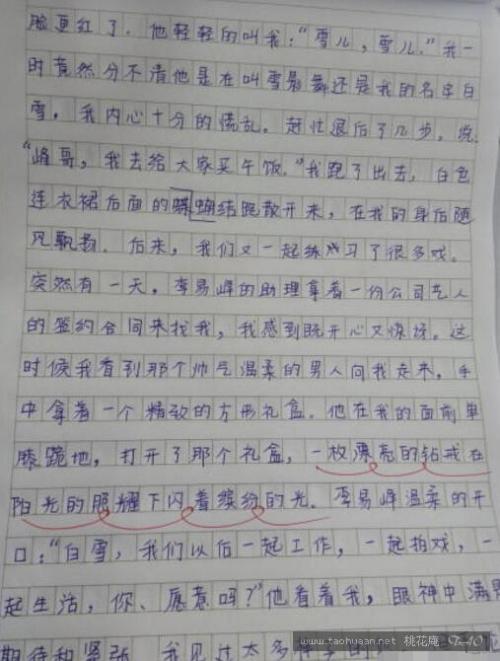 脸更红了。他轻轻的叫我:“雪儿,雪儿。”我一
时竟然分不清他是在叫雪影舞还是我的名字白
雪,我内心十分的慌乱。赶忙退后了几步,说
“峰哥,我去给大家买午饭。”我跑了出去,白色
连衣裙后面的蝴蝶结跑散开来,在我的身后随
风飘扬。后来,我们又一起练习了很多戏。
突然有一天,李易峰的助理拿着一份公司艺人
的签约合同来找我,我感到既开心又惊讶。这
时候我看到那个帅气温柔的男人向我走来,手
中拿着一个精致的方形礼盒。他在我的面前单
膝跪地,打开了那个礼盒,一枚漂亮的钻戒在
阳光的照耀下闪着缤纷的光。李易峰温柔的开
口:“白雪,我们以后一起工作,一起拍戏,一
起生活,你、愿意吗?”他看着我,眼神中满
期待和紧张。我见过太多
www.taohuaan.net 桃花庵